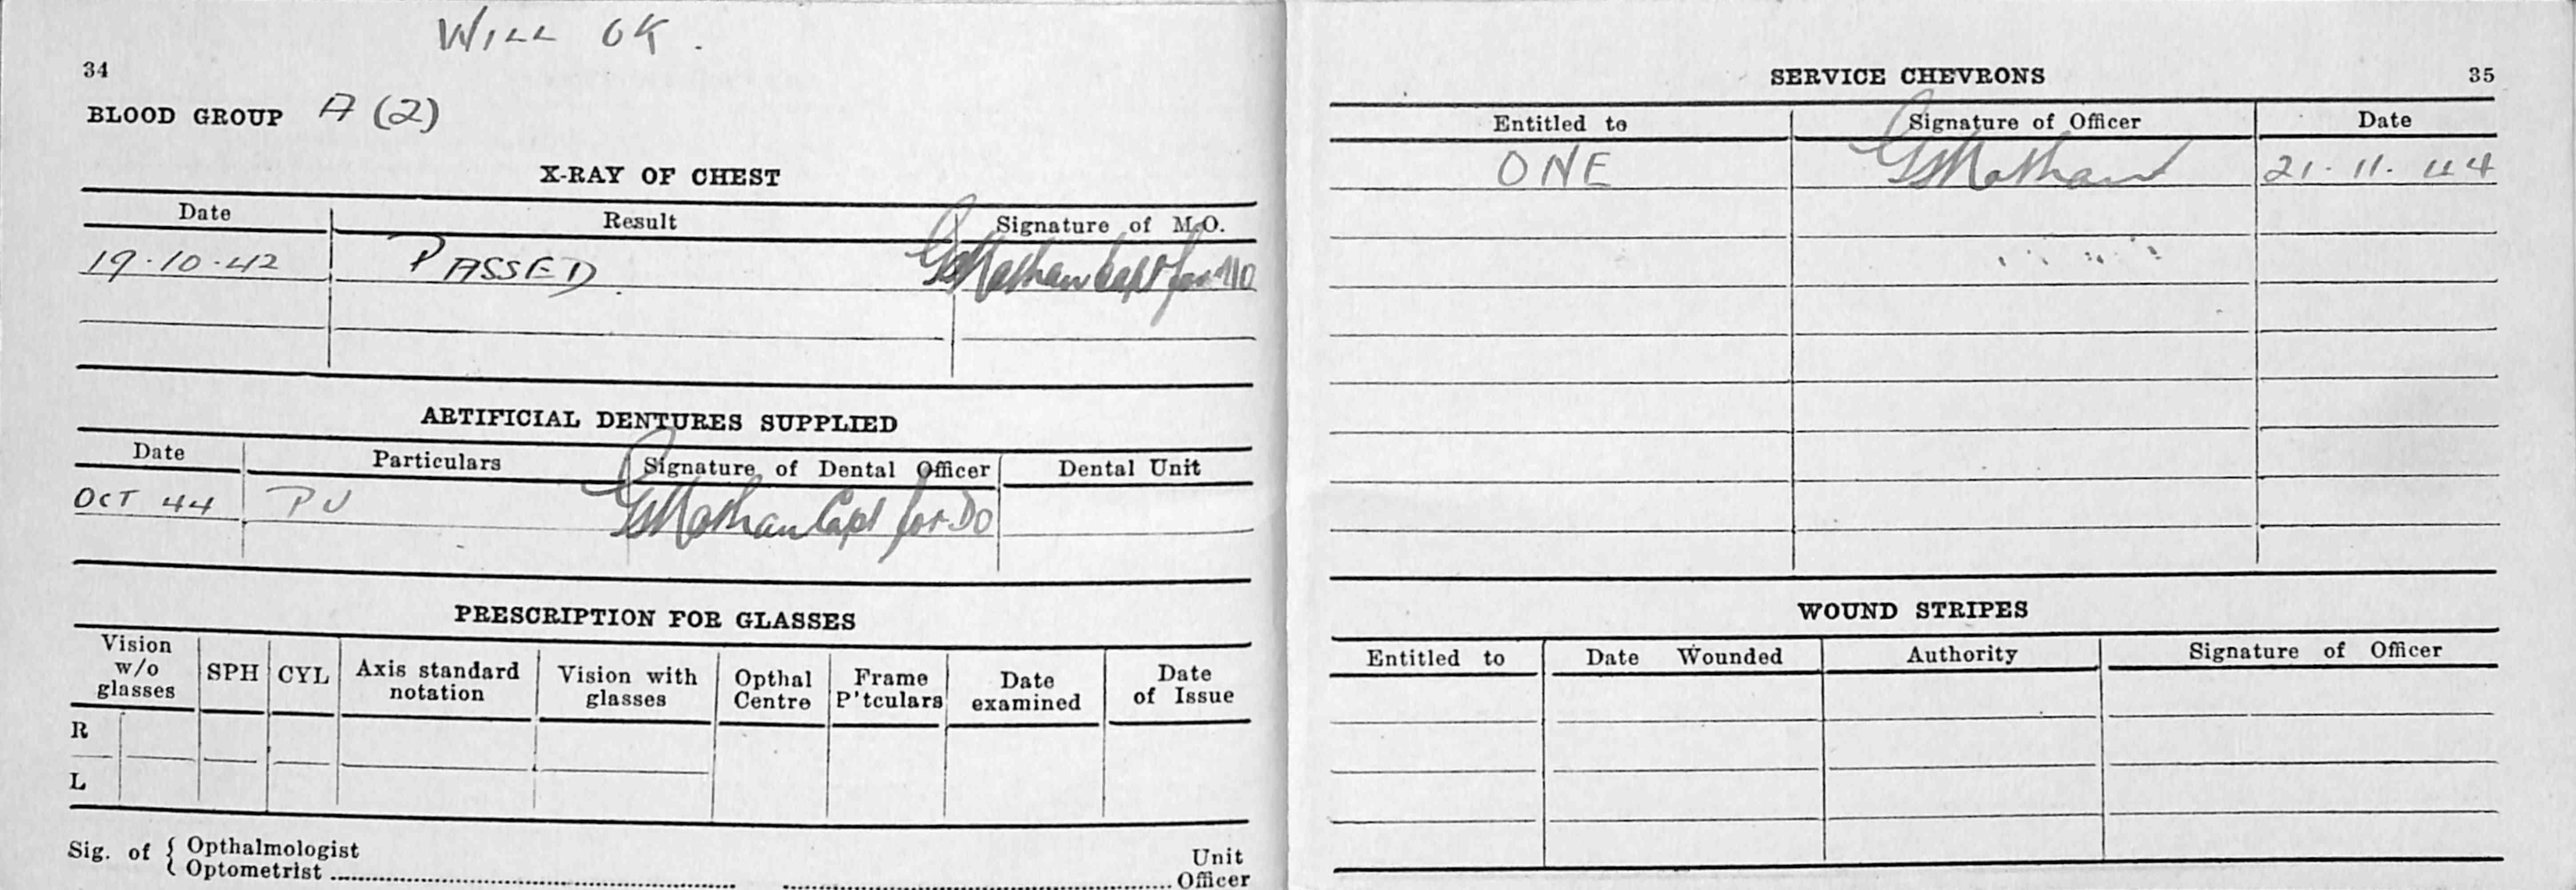 WILL OK.
34
BLOOD GROUP A (2)
X-RAY OF CHEST
Date Result Signature of M.O.
19.10.42 PASSED. Capt for MO
ARTIFICIAL DENTURES SUPPLIED
Date Particulars Signature of Dental Officer Dental Unit
OCT 44 PU Capt for DO
PRESCRIPTION FOR GLASSES
Vision w/o glasses SPH CYL Axis standard notation Vision with glasses Opthal Centre Frame P'tculars Date examined Date of Issue
R
L
Sig. of { Opthalmologist Unit
Optometrist Officer
SERVICE CHEVRONS 35
Entitled to Signature of Officer Date
ONE 21.11.44
WOUND STRIPES
Entitled to Date Wounded Authority Signature of Officer